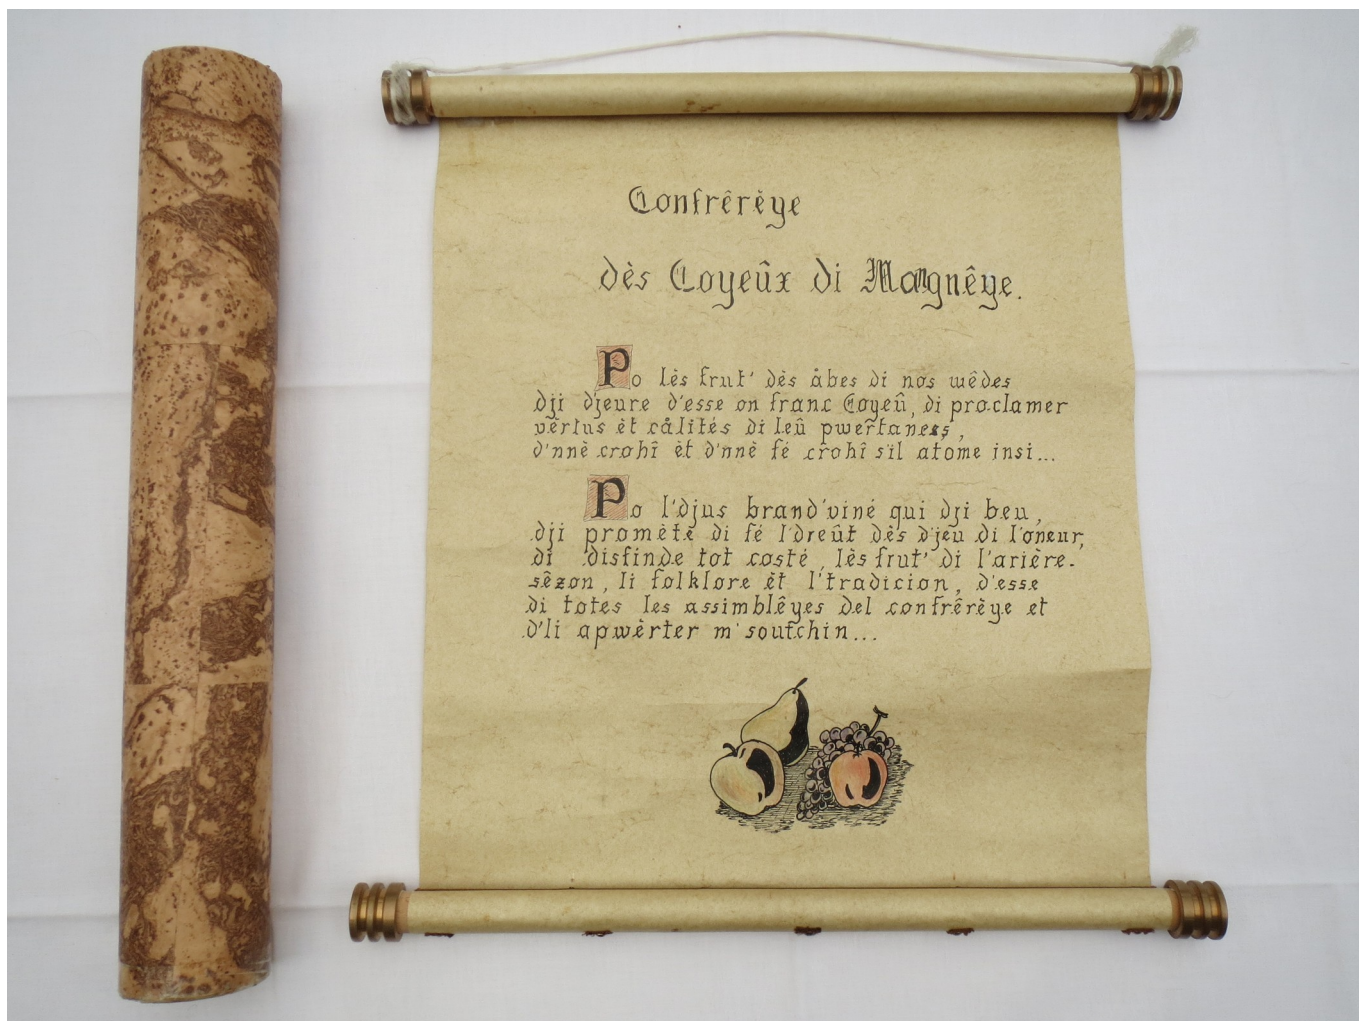 Confrêrèye
dès Coyeûx di Magnêye.
Po lès frut' dès åbes di nos wêdes
dji djeure d'esse on franc Coyeû, di proclamer
vèrtus èt cålités di leû pwèrtaness,
d'nnè crohî èt d'nnè fé crohî s'il atome insi...
Po l'djus brand'viné qui dji beu,
dji promète di fé l'dreût dès d'jeû di l'oneur,
di disfinde tot costé, lès frut' di l'arière-
sêzon, li folklore èt l'tradicion, d'esse
di totes les assimblêyes del confrêrèye et
d'li apwèrter m'soutchin...